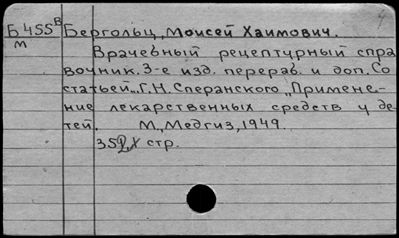 Б455в Бергольц, Моисей Хаимович.
м
Врачебный рецептурный спра
вочник. 3-е изд. перераб. и доп. Со
статьей... Г.Н. Сперанского „Примене-
ние лекарственных средств у де
тей. М., Медгиз, 1949.
352 стр.